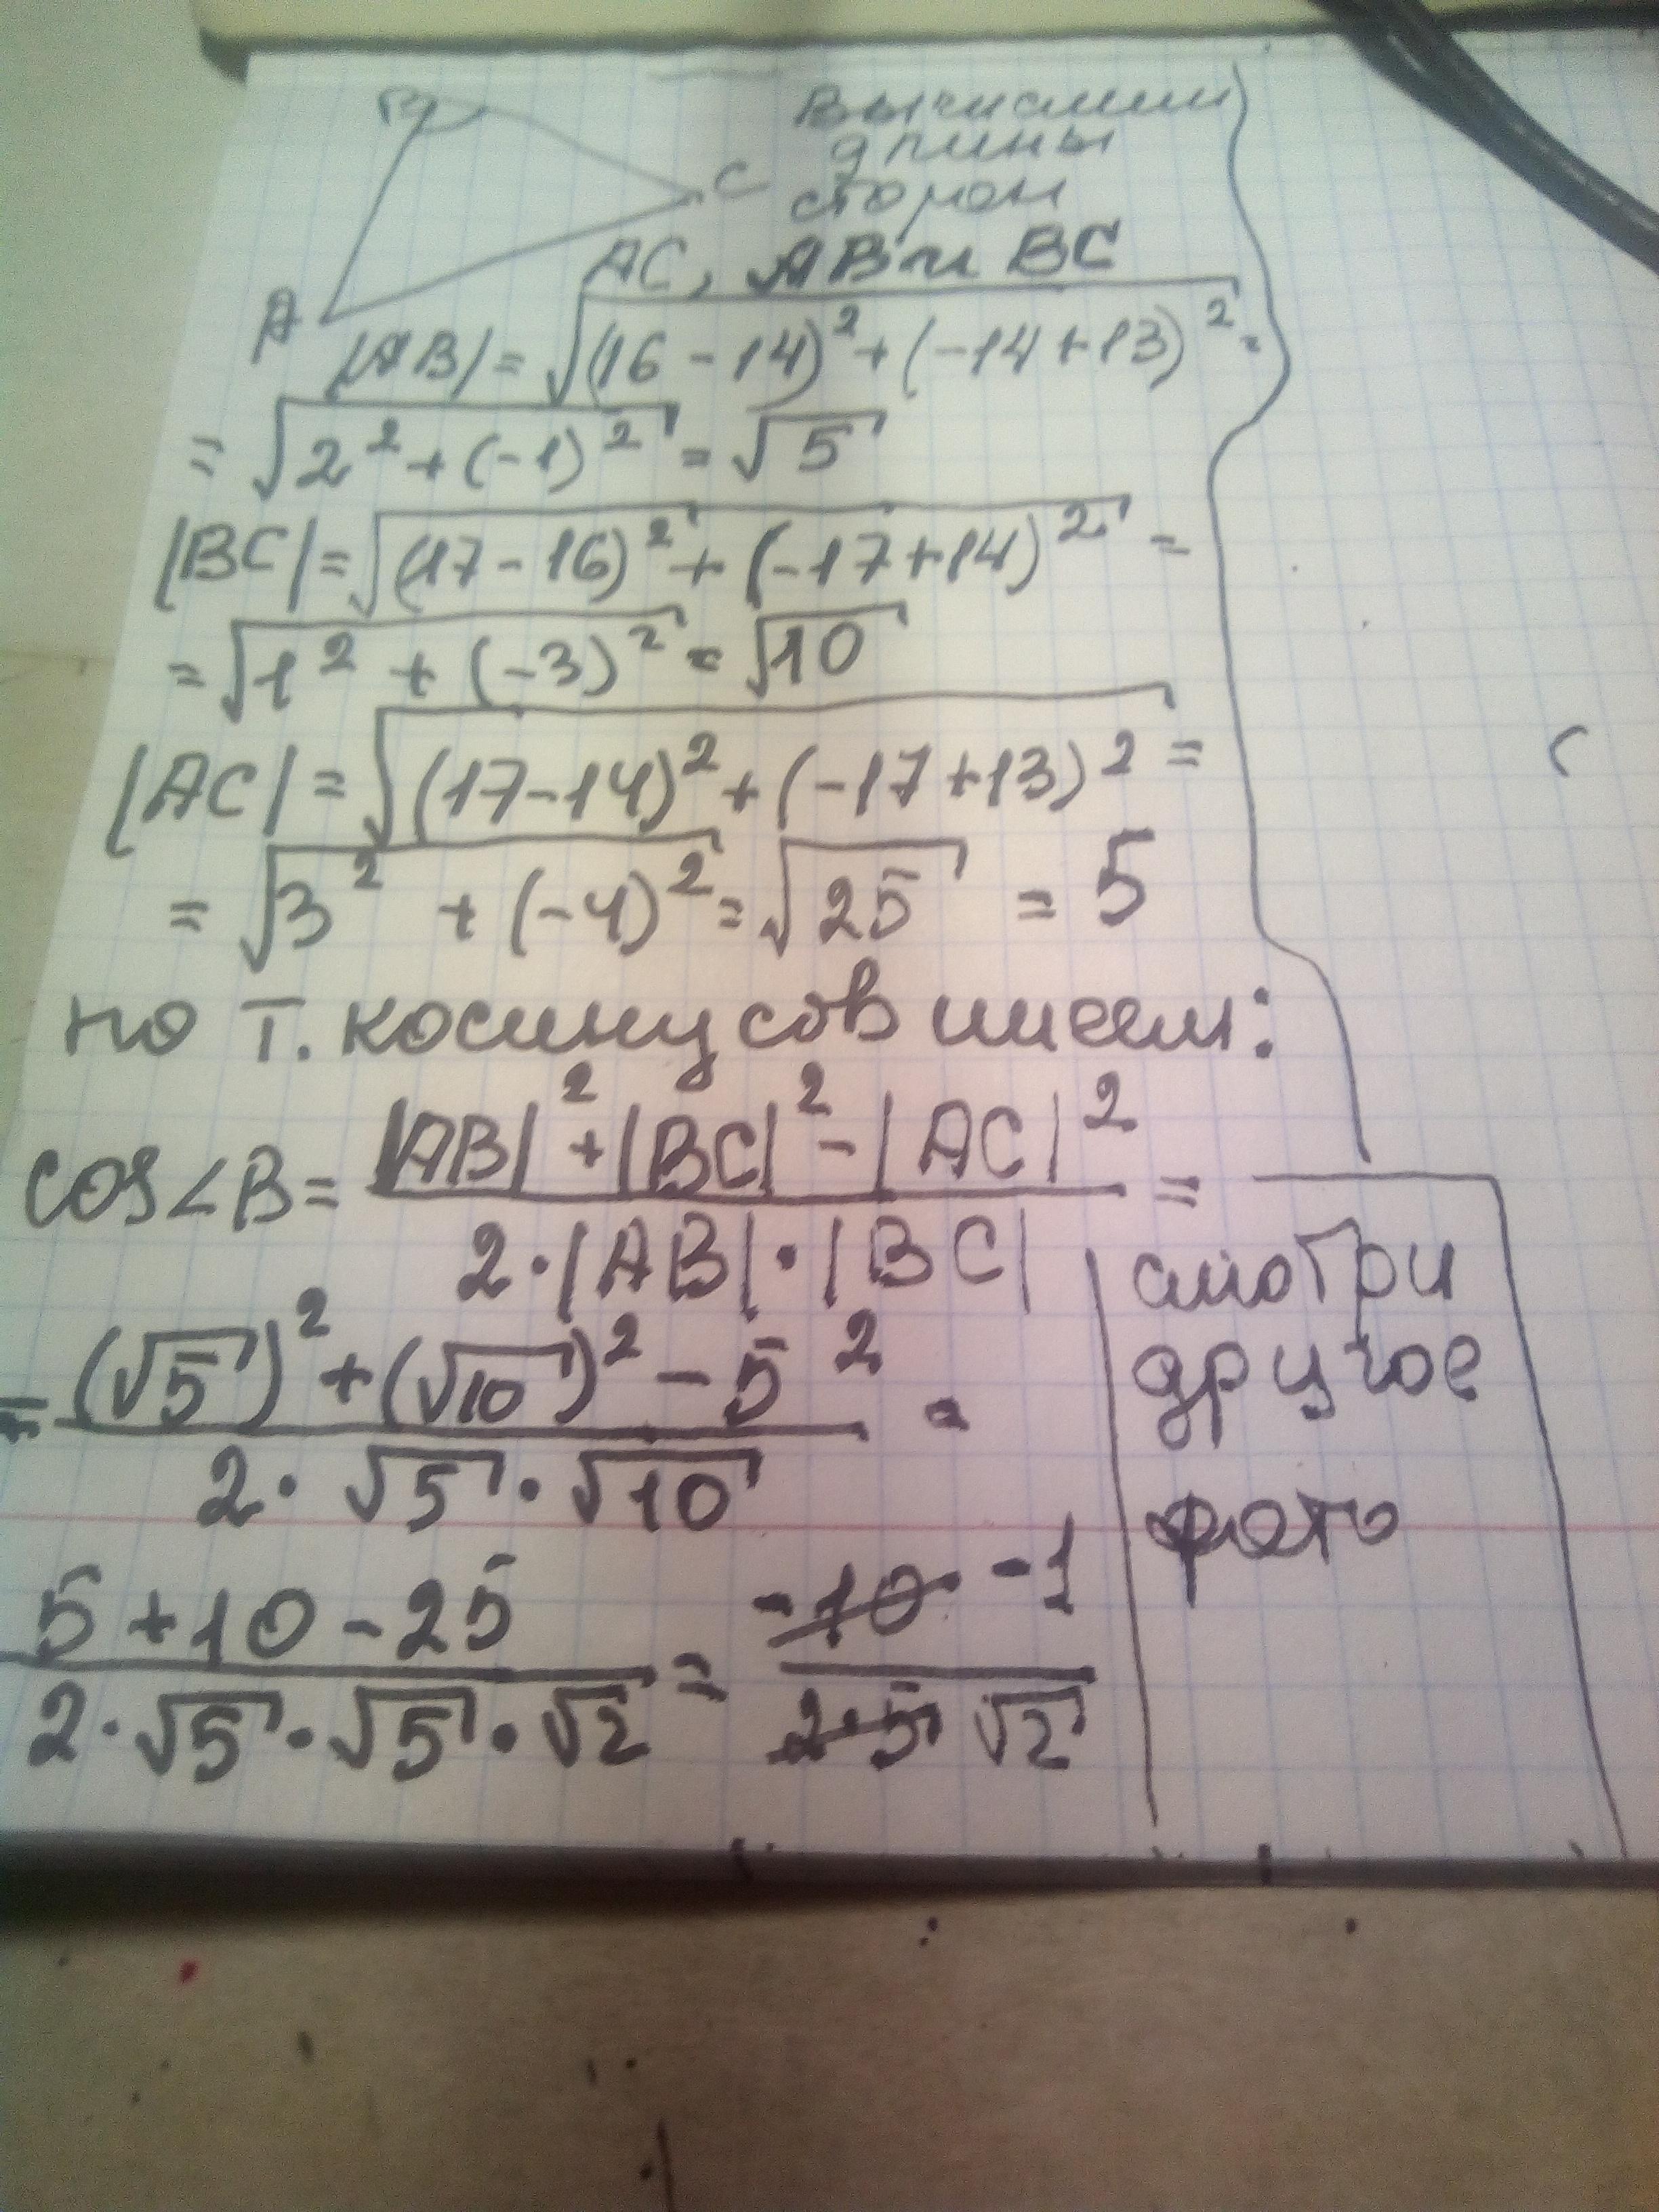 B
Вычислим
длины
C
сторон
AC, AB и BC
A
|AB| = √((16 - 14)² + (-14 + 13)²) =
= √(2² + (-1)²) = √5
|BC| = √((17 - 16)² + (-17 + 14)²) =
= √(1² + (-3)²) = √10
|AC| = √((17 - 14)² + (-17 + 13)²) =
= √(3² + (-4)²) = √25 = 5
по т. косинусов имеем:
cos∠B = (|AB|² + |BC|² - |AC|²) / (2·|AB|·|BC|) =
= ((√5)² + (√10)² - 5²) / (2·√5·√10) =
(5 + 10 - 25) / (2·√5·√5·√2) = (-10 -1) / (2·5 √2)
смотри
другое
фото